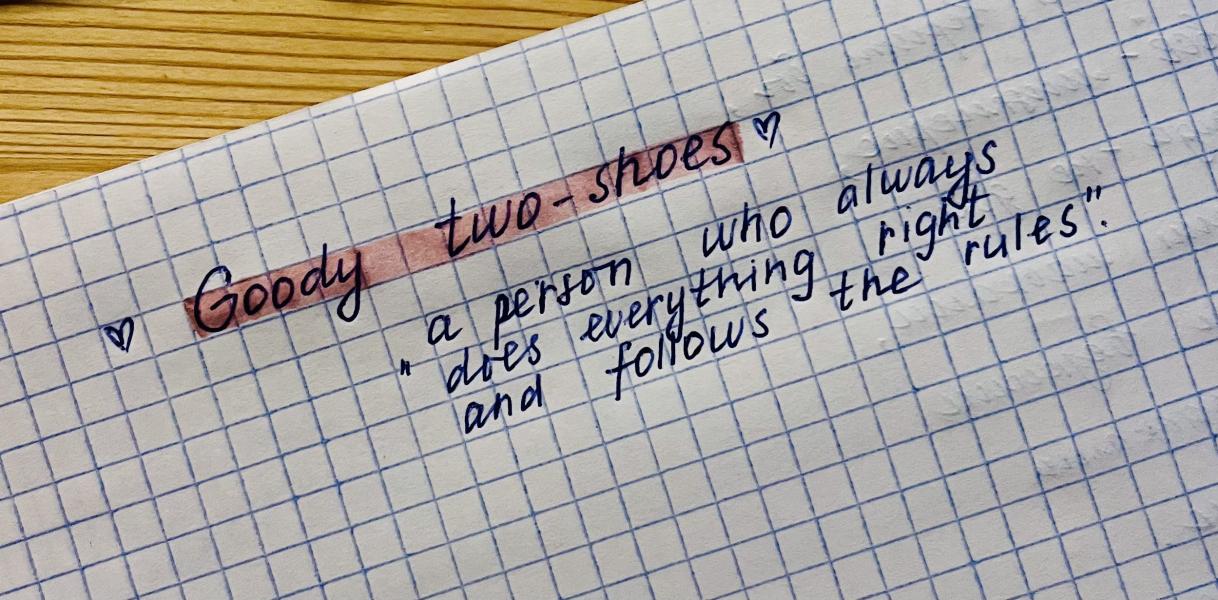 ♡ Goody two-shoes ♡
a person who always
" does everything right
and follows the rules".